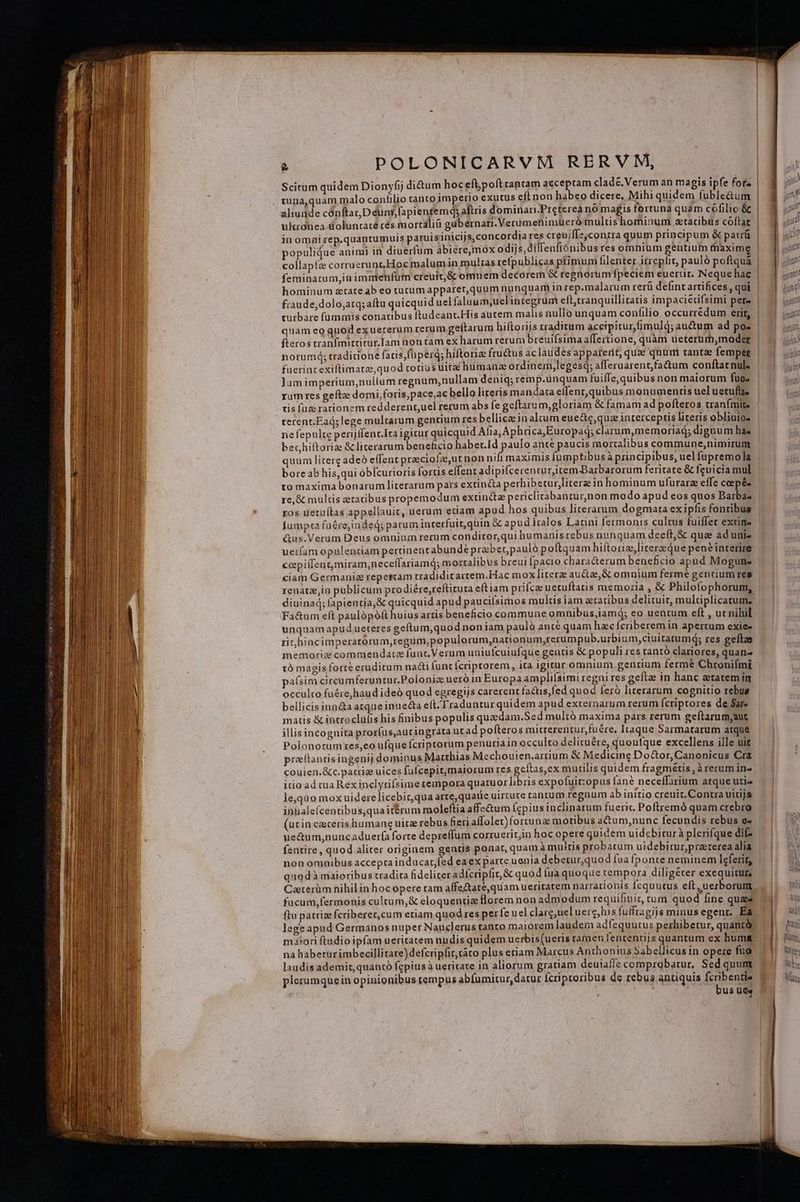 POLONICARVM RERVM,
Scitum quidem Dionyſij dictum hoc eſt, poſt tantam acceptam cladē. Verum an magis ipſe for-
tuna, quam malo conſilio tanto imperio exutus eſt non habeo dicere. Mihi quidem ſublectum
aliunde cōſtat, Deum, ſapientemq; aſtris dominari. Preterea nō magis fortuna quàm cōſilio &
ultronea uoluntate res mortaliū gubernari. Verumenimuerò multis hominum ætatibus cōſtat
in omni rep. quantumuis paruis inicijs, concordia res creuiſſe, contra quum principum & patrū
populique animi in diuerſum abiere, mox odijs, diſſenſionibus res omnium gentium maxime
collapſæ corruerunt. Hoc malum in multas reſpublicas primum ſilenter irrepſit, pauló poſtquā
ſeminatum, in immenſum creuit, & omnem decorem & regnorum ſpeciem euertit. Neque hac
hominum ætate ab eo tutum apparet, quum nunquam in rep. malarum rerū deſint artifices, qui
fraude, dolo, atq; aſtu quicquid uel ſaluum, uel integrum eſt, tranquillitatis impaciētiſsimi per-
turbare ſummis conatibus ſtudeant. His autem malis nullo unquam conſilio occurrēdum erit,
quam eo quod ex ueterum rerum geſtarum hiſtorijs traditum accipitur, ſimulq; auctum ad po-
ſteros tranſmittitur. Iam non tam ex harum rerum breuiſsima aſſertione, quàm ueterum, moder
norumq; traditione ſatis, ſuperq; hiſtoriæ fructus ac laudes apparent, quæ quum tantæ ſemper
fuerint exiſtimatæ, quod totius uitæ humanæ ordinem, legesq; aſſeruarent, factum conſtat nul-
lum imperium, nullum regnum, nullam deniq; remp. unquam fuiſſe, quibus non maiorum ſuo-
rum res geſtæ domi, foris, pace, ac bello literis mandata eſſent, quibus monumentis uel uetuſta-
tis ſuæ rationem redderent, uel rerum abs ſe geſtarum, gloriam & famam ad poſteros tranſmit-
terent. Eaq; lege multarum gentium res bellicæ in altum euectę, quæ interceptis literis obliuio-
ne ſepultę perijſſent. Ita igitur quicquid Aſia, Aphrica, Europaq; clarum, memoriaq; dignum ha-
bet, hiſtoriæ & literarum beneficio habet. Id paulo ante paucis mortalibus commune, nimirum
quum literę adeò eſſent præcioſæ, ut non niſi maximis ſumptibus à principibus, uel ſupremo la
bore ab his, qui obſcurioris ſortis eſſent adipiſcerentur, item Barbarorum feritate & ſęuicia mul
to maxima bonarum literarum pars extincta perhibetur, literæ in hominum uſurarǣ eſſe cœpe-
re, & multis ætatibus propemodum extinctæ periclitabantur, non modo apud eos quos Barba-
ros uetuſtas appellauit, uerum etiam apud hos quibus literarum dogmata ex ipſis fontibus
ſumpta fuêre, indeq; parum interfuit, quin & apud Italos Latini ſermonis cultus fuiſſet extin-
ctus. Verum Deus omnium rerum conditor, qui humanis rebus nunquam deeſt, & quæ ad uni-
uerſam opulentiam pertinent abundè præbet, paulò poſtquam hiſtoriæ, literæque penè interire
cœpiſſent, miram, neceſſariamq; mortalibus breui ſpacio characterum beneficio apud Mogun-
ciam Germaniæ repertam tradidit artem. Hac mox literæ auctæ, & omnium fermè gentium res
renatæ, in publicum prodiére, reſtituta eſt iam priſcæ uetuſtatis memoria, & Philoſophorum,
diuinaq; ſapientia, & quicquid apud pauciſsimos multis iam ætatibus delituit, multiplicatum.
Factum eſt paulòpòſt huius artis beneficio commune omnibus, iamq; eo uentum eſt, ut nihil
unquam apud ueteres geſtum, quod non iam paulò ante quam hæc ſcriberem in apertum exie-
rit, hinc imperatorum, regum, populorum, nationum, rerumpub. urbium, ciuitatumq; res geſtæ
memoriæ commendatæ ſunt. Verum uniuſcuiuſque gentis & populi res tantó clariores, quan-
tò magis forte eruditum nacti ſunt ſcriptorem, ita igitur omnium gentium fermè Chroniſmi
paſsim circumferuntur. Poloniæ uerò in Europa ampliſsimi regni res geſtæ in hanc ætatem in
occulto fuére, haud ideò quod egregijs carerent factis, ſed quod ferò literarum cognitio rebus
bellicis iuncta atque inuecta eſt. Traduntur quidem apud externarum rerum ſcriptores de Sar-
matis & introcluſis his finibus populis quædam. Sed multò maxima pars rerum geſtarum, aut
illis incognita prorſus, aut ingrata ut ad poſteros mitterentur, fuére. Itaque Sarmatarum atque
Polonorum res, eo uſque ſcriptorum penuria in occulto delituêre, quouſque excellens ille uir
præſtantis ingenij dominus Matthias Mechouien. artium & Medicinę Doctor, Canonicus Cra
couien. &c. patriæ uices ſuſcepit, maiorum res geſtas, ex mutilis quidem fragmētis, à rerum in-
itio ad tua Rex inclytiſsime tempora quatuor libris expoſuit: opus ſanè neceſſarium atque uti-
le, quo mox uidere licebit, qua arte, quaue uirtute tantum regnum ab initio creuit. Contra uitijs
inualeſcentibus, qua iterum moleſtia affectum ſępius inclinatum fuerit. Poſtremó quam crebro
(ut in cæteris humanę uitæ rebus fieri aſſolet) fortunæ motibus actum, nunc ſecundis rebus e-
uectum, nunc aduerſa forte depreſſum corruerit, in hoc opere quidem uidebitur à pleriſque diſ-
ſentire, quod aliter originem gentis ponat, quam à multis probatum uidebitur, præterea alia
non omnibus accepta inducat, ſed ea ex parte uenia debetur, quod ſua ſponte neminem leſerit,
quod à maioribus tradita fideliter adſcripſit, & quod ſua quoque tempora diligēter exequitur.
Cæterùm nihil in hoc opere tam affectatè, quam ueritatem narrationis ſequutus eſt, uerborum
fucum, ſermonis cultum, & eloquentiæ florem non admodum requiſiuit, tum quod ſine quæ-
ſtu patriæ ſcriberet, cum etiam quod res per ſe uel clarę, uel uerę, his ſuffragijs minus egent. Ea
lege apud Germanos nuper Nauclerus tanto maiorem laudem adſequutus perhibetur, quantò
maiori ſtudio ipſam ueritatem nudis quidem uerbis (ueris tamen ſententijs quantum ex humā
na habetur imbecillitate) deſcripſit, tāto plus etiam Marcus Anthonius Sabellicus in opere ſuo
laudis ademit, quantò ſępius à ueritate in aliorum gratiam deuiaſſe comprobatur. Sed quum
plerumque in opinionibus tempus abſumitur, datur ſcriptoribus de rebus antiquis ſcribenti-
bus ue-